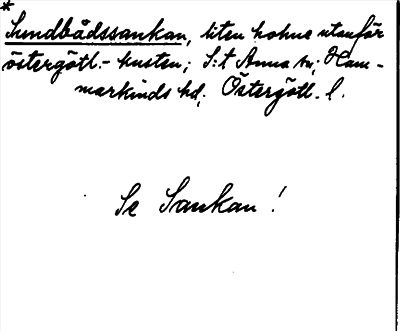 *
Sundbådssankan, liten holme utanför
östergötl.-kusten; S:t Anna sn; Ham-
markinds hd; Östergötl. l.
Se Sankan!